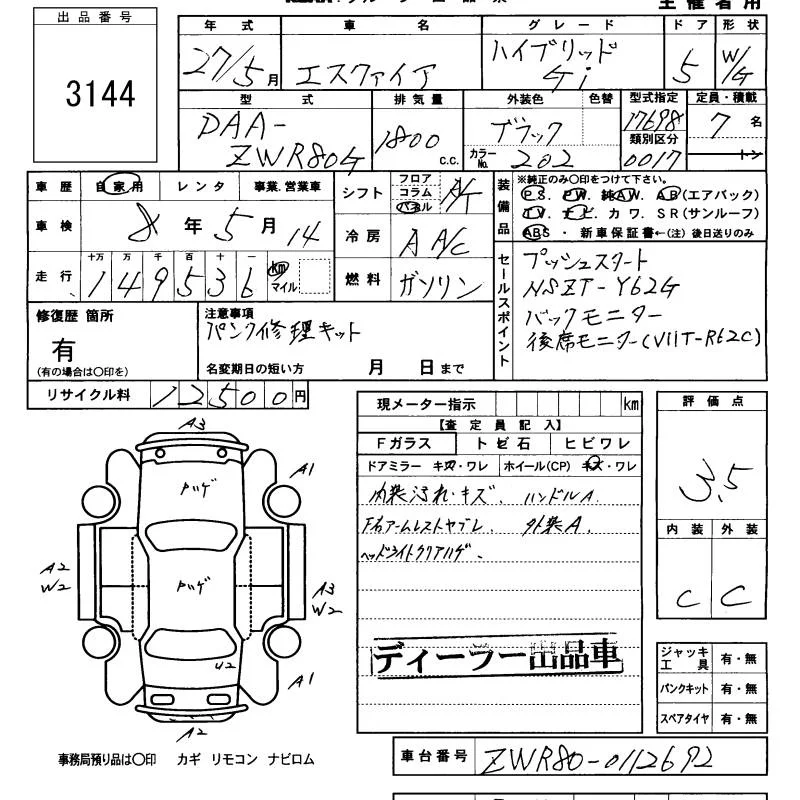 主催者用
出品番号
3144
年式 車名 グレード ドア 形状
27/5月 エスクァイア ハイブリッド Gi 5 W/G
型式 排気量 外装色 色替 型式指定 定員・積載
DAA-ZWR80G 1800 c.c. ブラック 17698 7名
カラーNo. 202 類別区分 0017 トン
車歴 自家用 レンタ 事業.営業車
シフト フロア コラム パネル A/T
車検 8年5月14
冷房 A A/C
走行 十万 万 千 百 十 一
149536 km マイル
燃料 ガソリン
装備品 ※純正のみ○印をつけて下さい。
PS. PW. 純AW. AB(エアバック)
TV. ナビ. カワ. SR(サンルーフ)
ABS ・ 新車保証書←(注) 後日送りのみ
セールスポイント
プッシュスタート
NSZT-Y62G
バックモニター
後席モニター(V11T-R62C)
修復歴 箇所
有
(有の場合は○印を)
注意事項
パンク修理キット
名変期日の短い方 月 日まで
リサイクル料 12500円
現メーター指示 km
【査定員記入】
Fガラス トビ石 ヒビワレ
ドアミラー キズ・ワレ ホイール(CP) キズ・ワレ
内装汚れ・キズ. ハンドルA.
F右アームレストヤブレ. 外装A.
ヘッドライトクリアハゲ.
ディーラー出品車
評価点
3.5
内装 外装
C C
A3
ハゲ
A1
A2
W2
ハゲ
A3
W2
U2
A1
A2
ジャッキ工具 有・無
パンクキット 有・無
スペアタイヤ 有・無
事務局預り品は○印 カギ リモコン ナビロム
車台番号 ZWR80-0112692